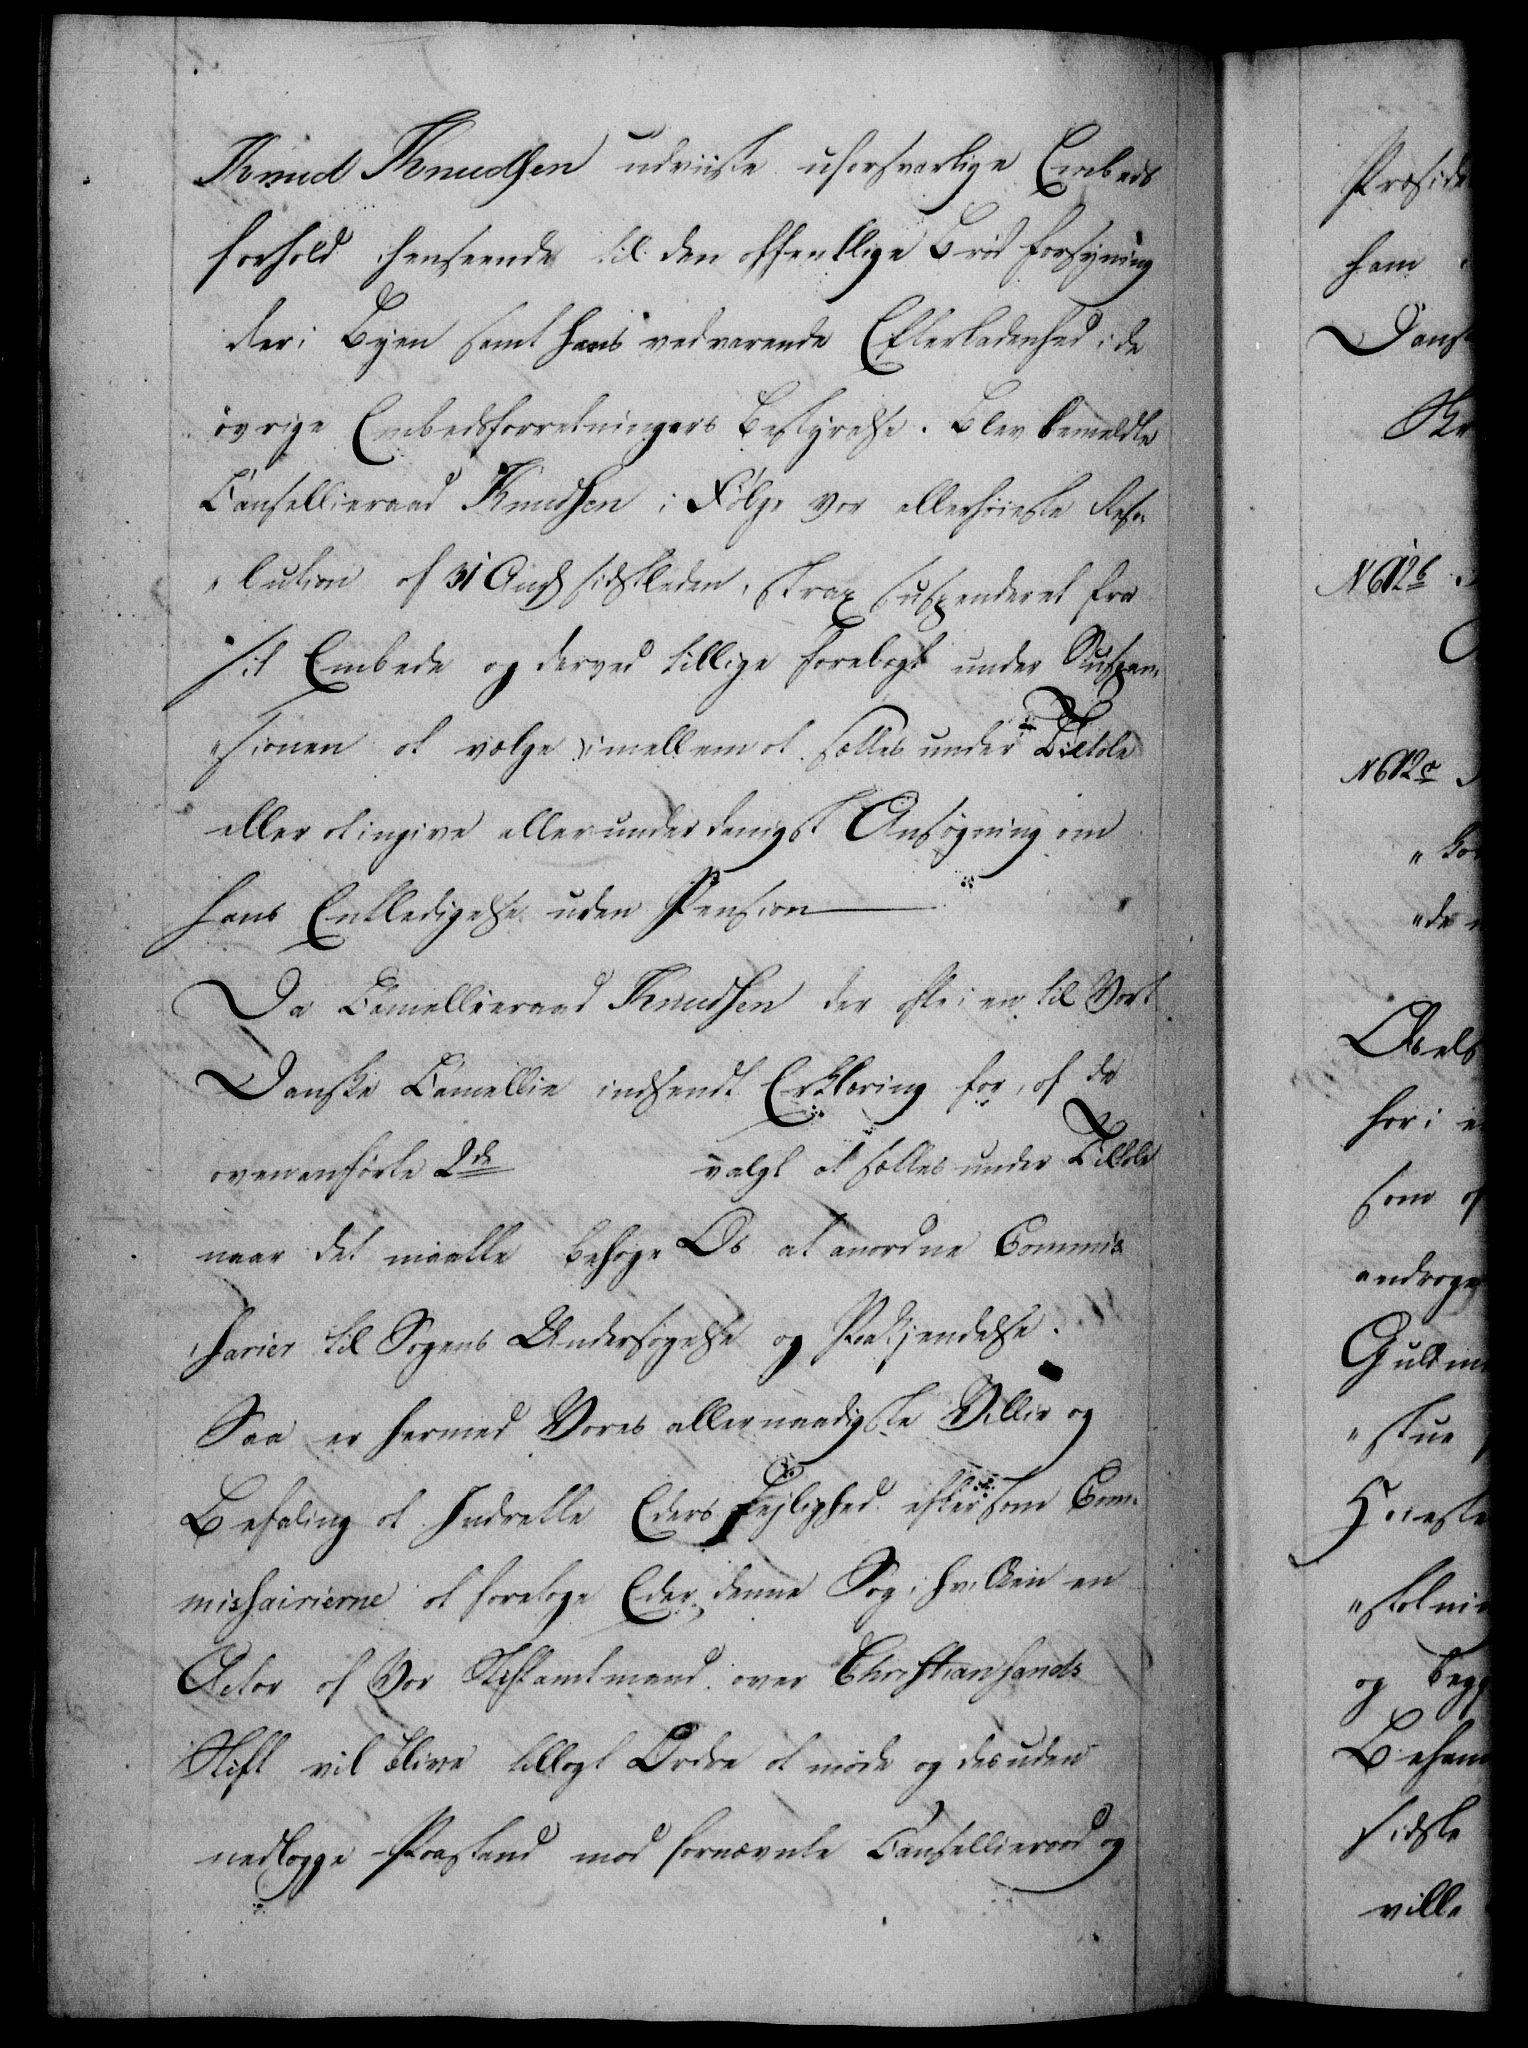 Knud Knudsen udviiste uforsvarlige Embeds
forhold ihenseende til den offentlige Brød forsyning
der i Byen samt hans vedvarende Efterladenhed i de
øvrige Embedsforretningers Bestyrelse. Blev bemeldte
Cancellieraad Knudsen i Følge vor allerhøieste Reso¬
„lution af 31 Aug sidstleden, strax suspenderet fra
sit Embede og derved tillige forelagt under Suspen¬
„sionen at vælge imellem at sættes under Tiltale
eller at ingive allerunderdanigst Ansøgning om
hans Entledigelse uden Pension
Da Cancellieraad Knudsen der efter i en til Vort
Danske Cancellie indsendt Erklæring har, af de
ovenanførte 2de valgt at sættes under Tiltale
naar det maatte behage Os at anordne Commis
sarier til Sagens Undersøgelse og Paakjendelse.
Saa er hermed Vores allernaadigste Villie og
Befaling at I indrette Eders Lejlighed eftersom Com¬
missairierne at foretage Eder denne Sag, i hvilken en
Actor af Vor Stiftamtmand over Christiansands
Stift vil blive tillagt Ordre at møde og desuden
nedlægge Paastand mod fornævnte Cancellieraad og
Præside
ham
Dansk
N612b
N612c
„de
Guldm
„stue
og
sidste
ville